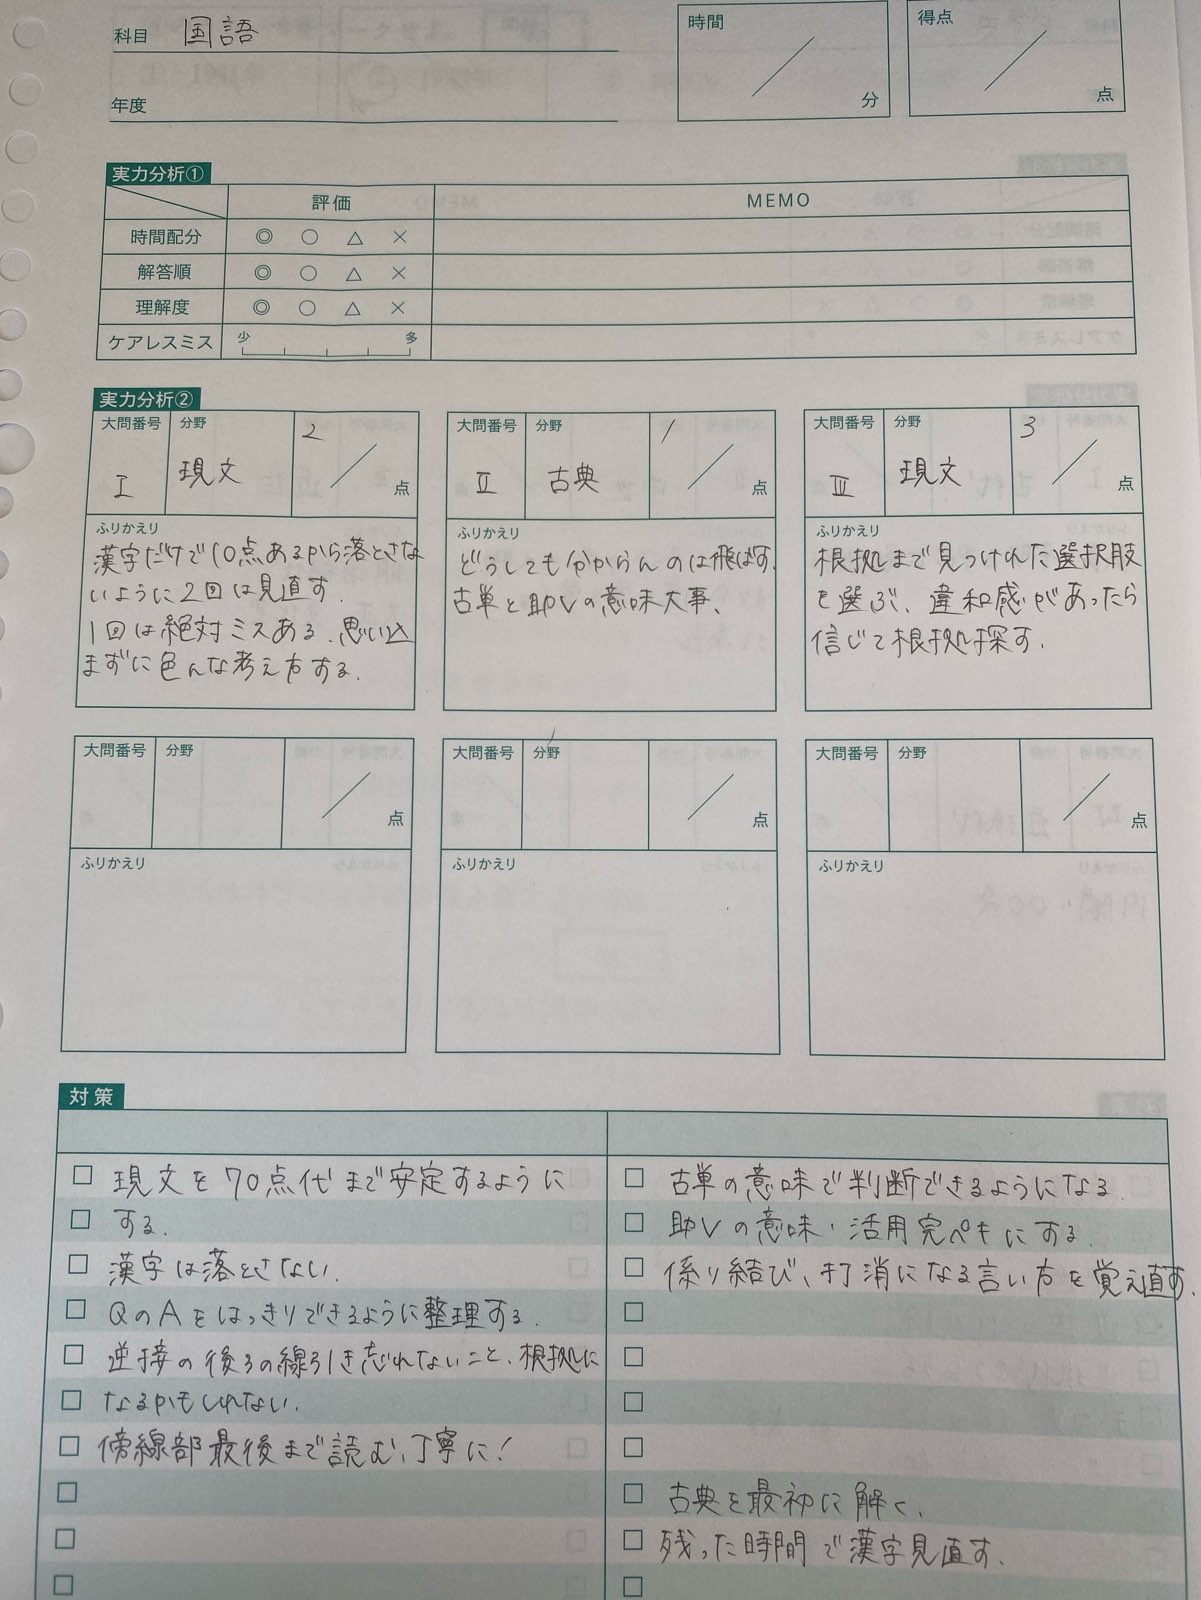 科目 国語
年度
時間
分
得点
点
実力分析①
評価 MEMO
時間配分 ◎ ○ △ ×
解答順 ◎ ○ △ ×
理解度 ◎ ○ △ ×
ケアレスミス 少 多
実力分析②
大問番号 分野 2
I 現文 点
ふりかえり
漢字だけで10点あるから落とさな
いように2回は見直す.
1回は絶対ミスある.思い込
まずに色んな考え方する.
大問番号 分野 1
II 古典 点
ふりかえり
どうしても分からんのは飛ばす.
古単と助Vの意味大事、
大問番号 分野 3
III 現文 点
ふりかえり
根拠まで見つけれた選択肢
を選ぶ、違和感があったら
信じて根拠探す.
大問番号 分野 点
ふりかえり
大問番号 分野 点
ふりかえり
大問番号 分野 点
ふりかえり
対策
現文を70点代まで安定するように
する.
漢字は落とさない.
QのAをはっきりできるように整理する.
逆接の後ろの線引き忘れないこと、根拠に
なるかもしれない.
傍線部最後まで読む、丁寧に!
古単の意味で判断できるようになる.
助Vの意味・活用完ペキにする.
係り結び、打消になる言い方を覚え直す.
古典を最初に解く、
残った時間で漢字見直す.